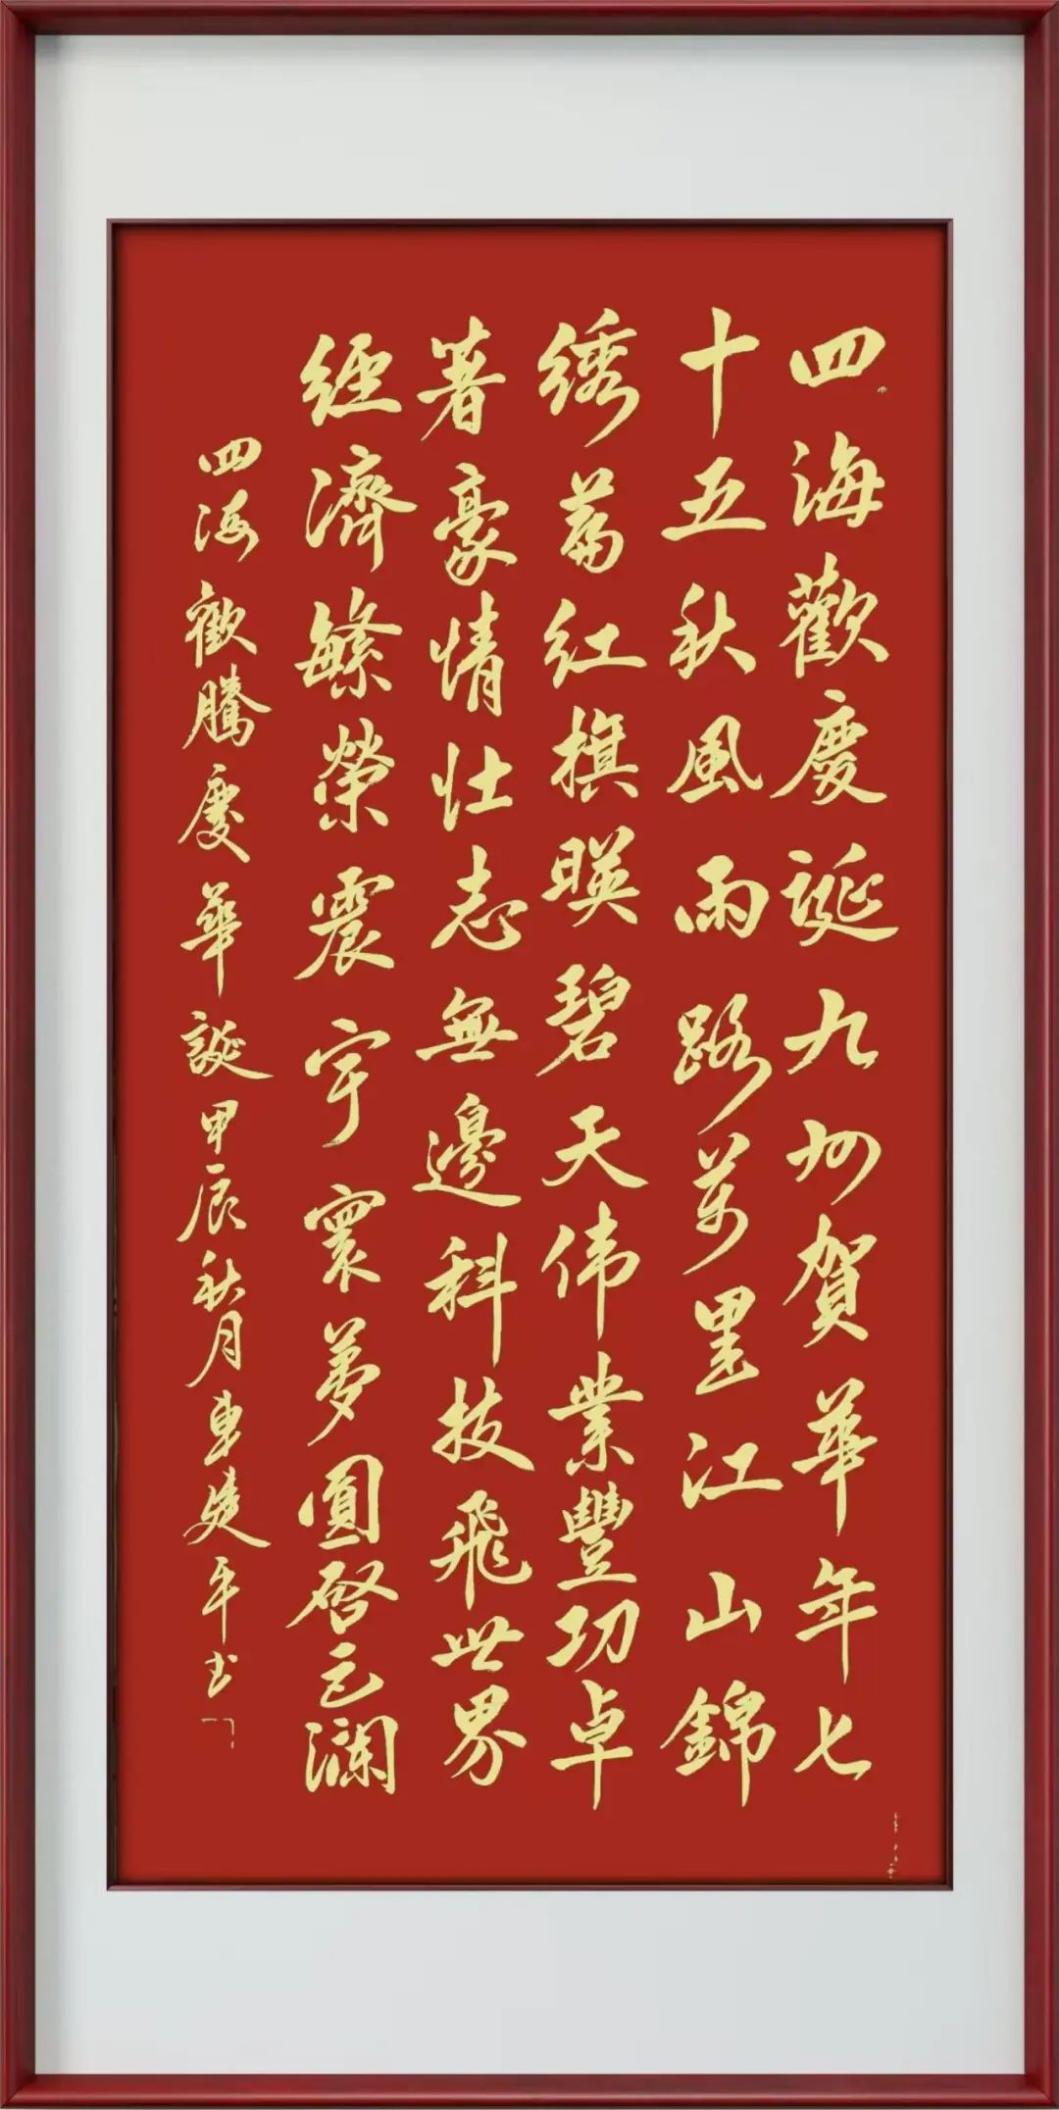 四海歡慶誕九州賀華年七
十五秋風雨路萬里江山錦
绣萬红旗暎碧天伟業豐功卓
著豪情壮志無邊科技飛世界
经濟繁榮震宇寰夢圓啓云瀾
四海歡騰慶華誕甲辰秋月車建平书